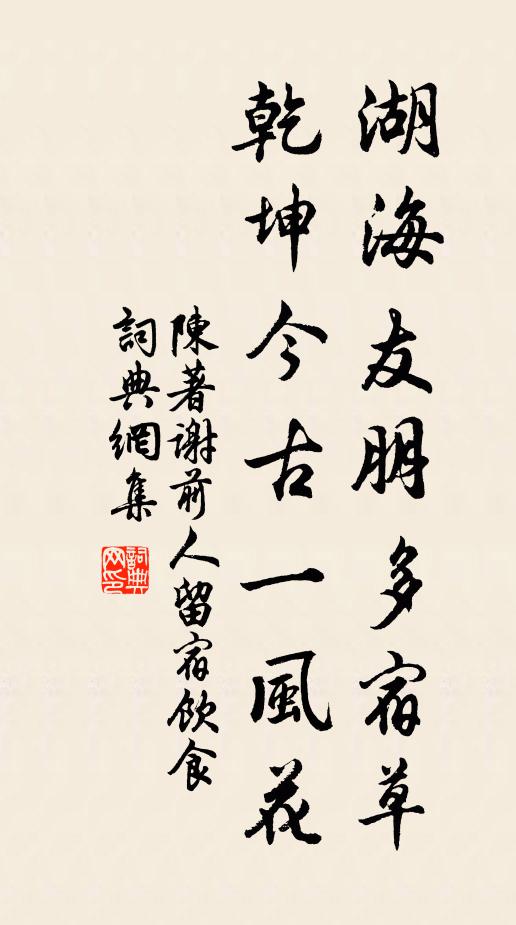 湖海友朋多宿草
乾坤今古一風花
陳著謝前人留宿飲食
詞典網集
詞典网印